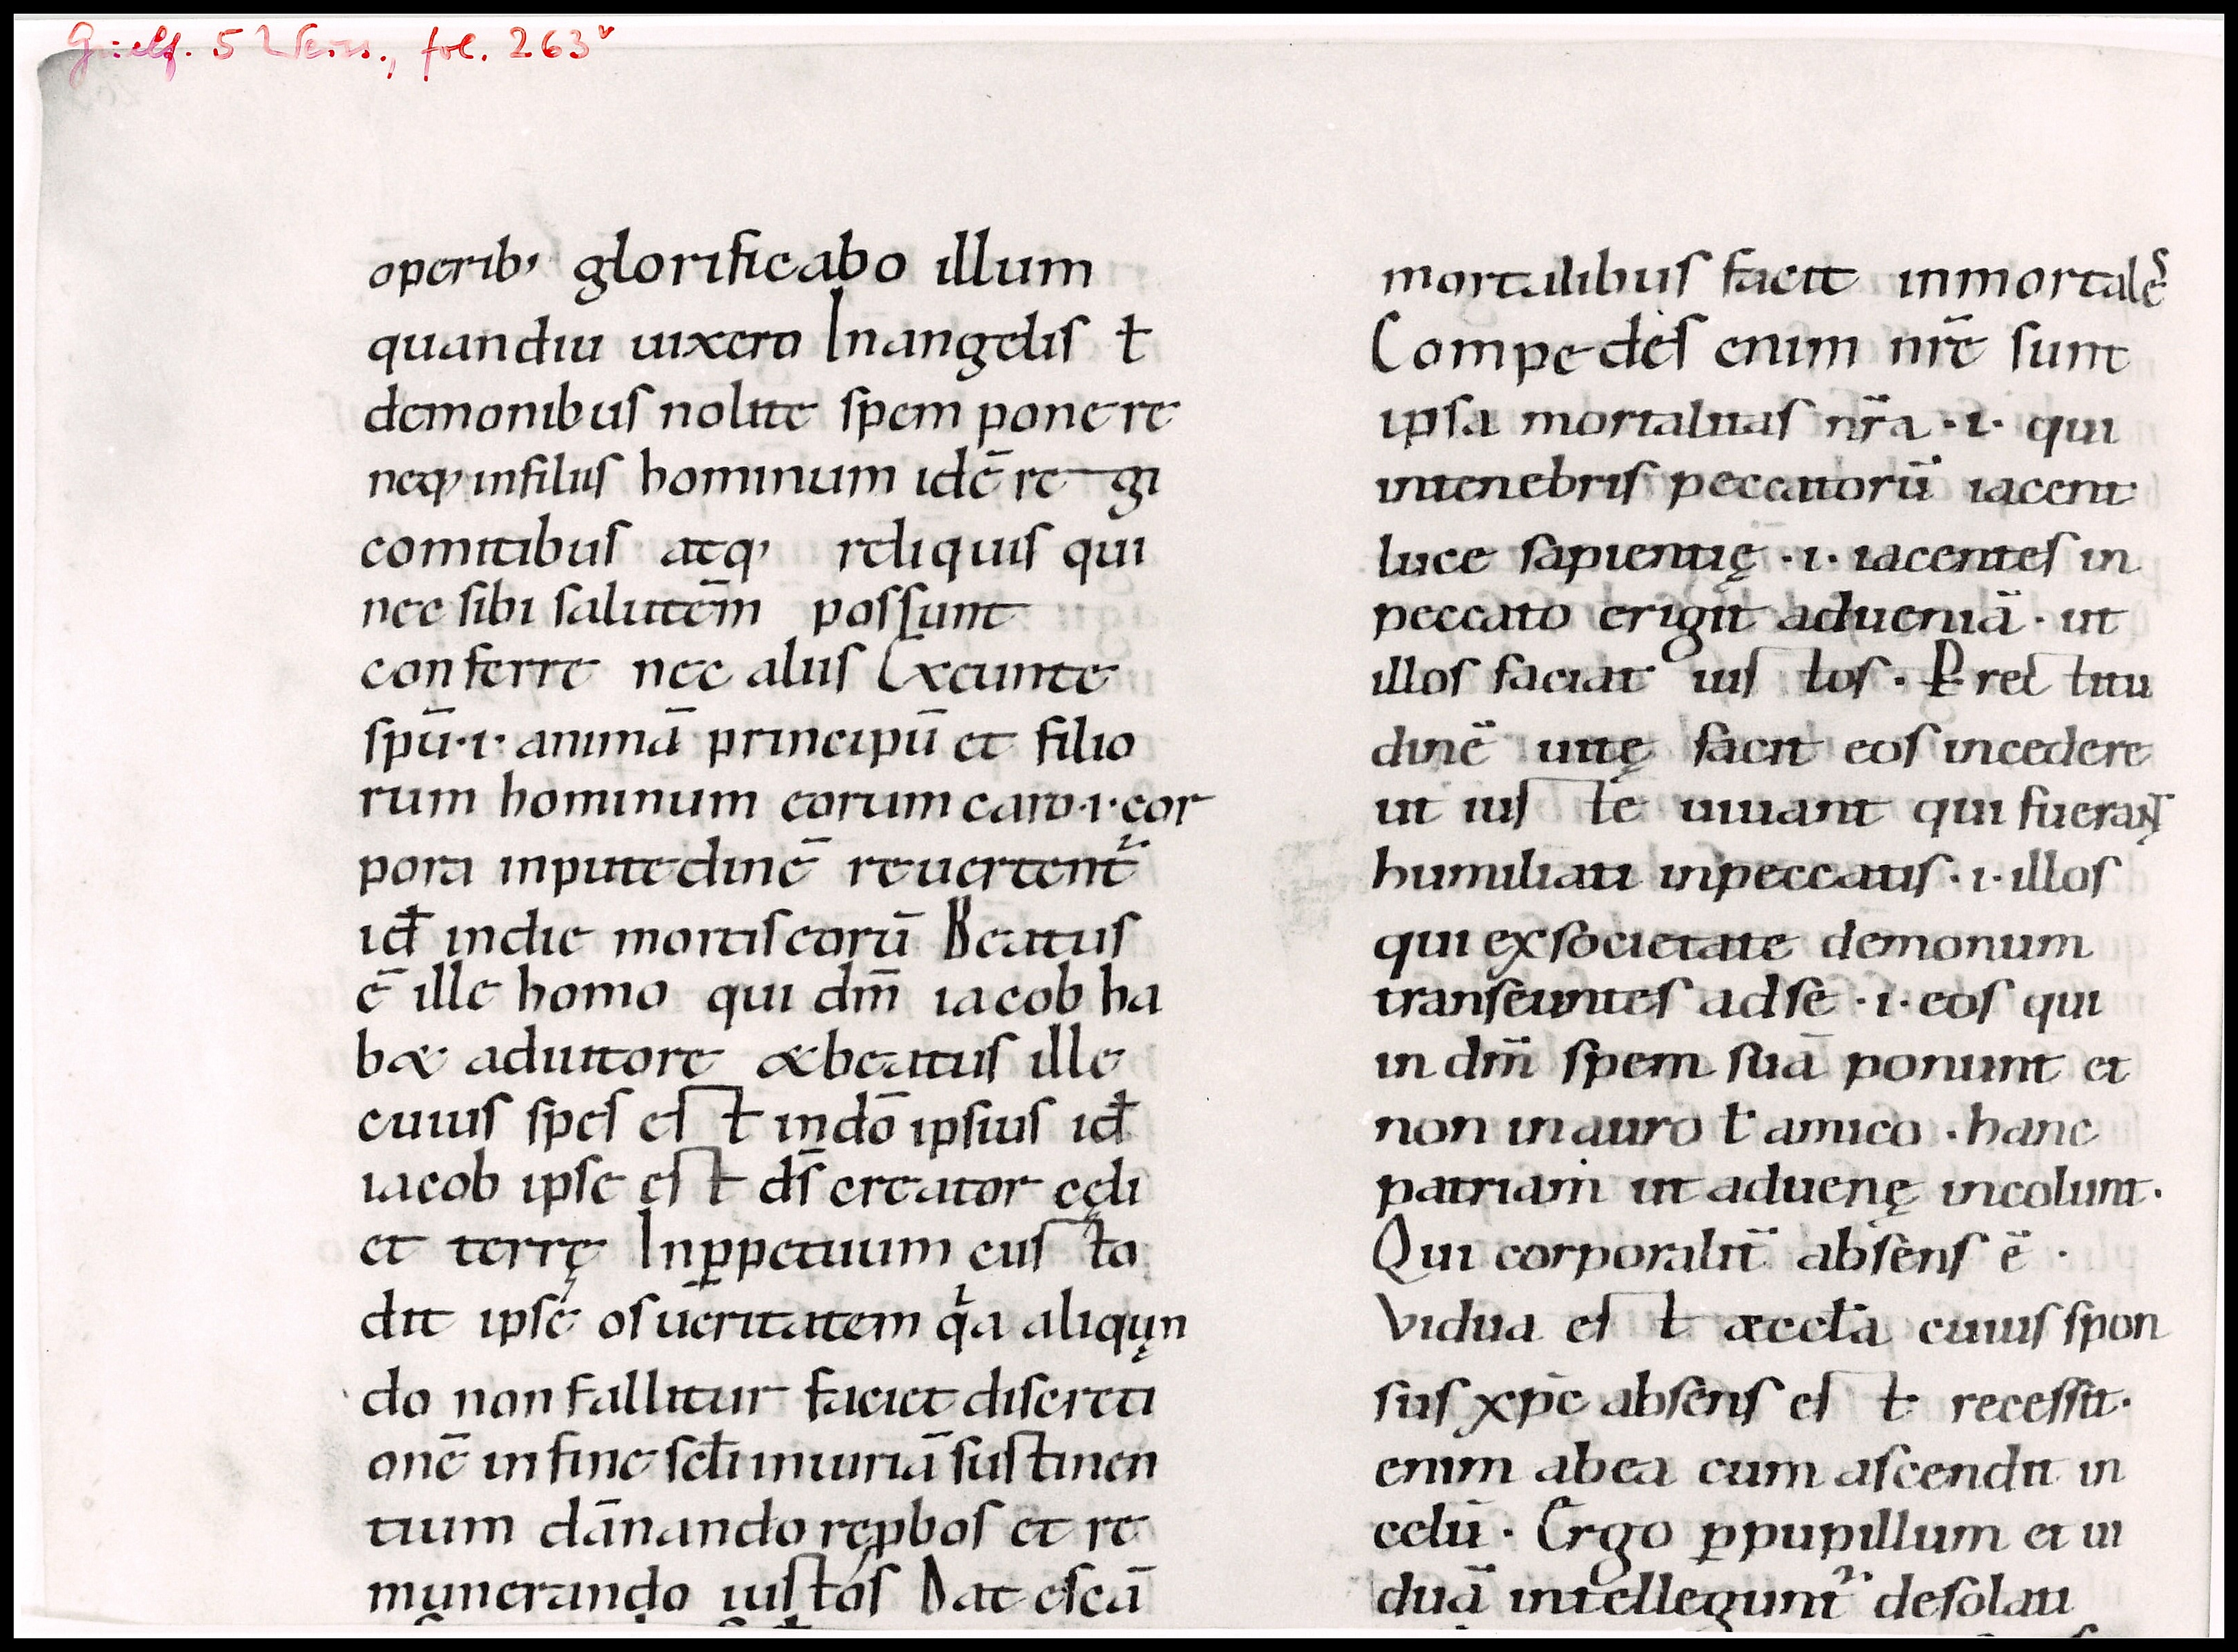 Guelf. 5 Weiss., fol. 263ᵛ
operib; glorificabo illum
quandiu uixero In angelis ł
demonibus nolite spem ponere
neq; in filiis hominum idē regi
comitibus atq; reliquis qui
nec sibi salutēm possunt
conferre nec aliis Exeunte
spū·i· animā principū et filio
rum hominum eorum caro·i·cor
pora in putedinē reuertent᷑
id̄ in die mortis eorū Beatus
ē ille homo qui dm̄ iacob ha
bæ adiutore æ beatus ille
cuius spes est in dō ipsius id̄
iacob ipse est ds̄ creator cęli
et terrę In ꝑpetuum custo
dit ipse os ueritatem qͥa aliqu̧n
do non fallitur faciet discreti
onē in fine scłi iniuriā sustinen
tium dānando rep̱bos et re
munerando iustos Dat escā
mortalibus facit inmortales
Compedes enim nr̄e sunt
ipsa mortalitas nr̄a ·i· qui
in tenebris peccatorū iacent
luce sapientię ·i· iacentes in
peccato erigit adueniā· ut
illos faciat iustos · P rectitu
dinē uitę facit eos incedere
ut iuste uiuant qui fuerant
humiliati in peccatis ·i· illos
qui ex societate demonum
transeuntes ad se ·i· eos qui
in dm̄ spem suā ponunt et
non in auro ł amico · hanc
patriam ut aduenę incolunt.
Qui corporalit̄ absens ē ·
Vidua est æccła cuius spon
sus xpc̄ absens est recessit·
enim ab ea cum ascendit in
celū · Ergo ꝑ pupillum et ui
duā intellegunt᷑ desolati